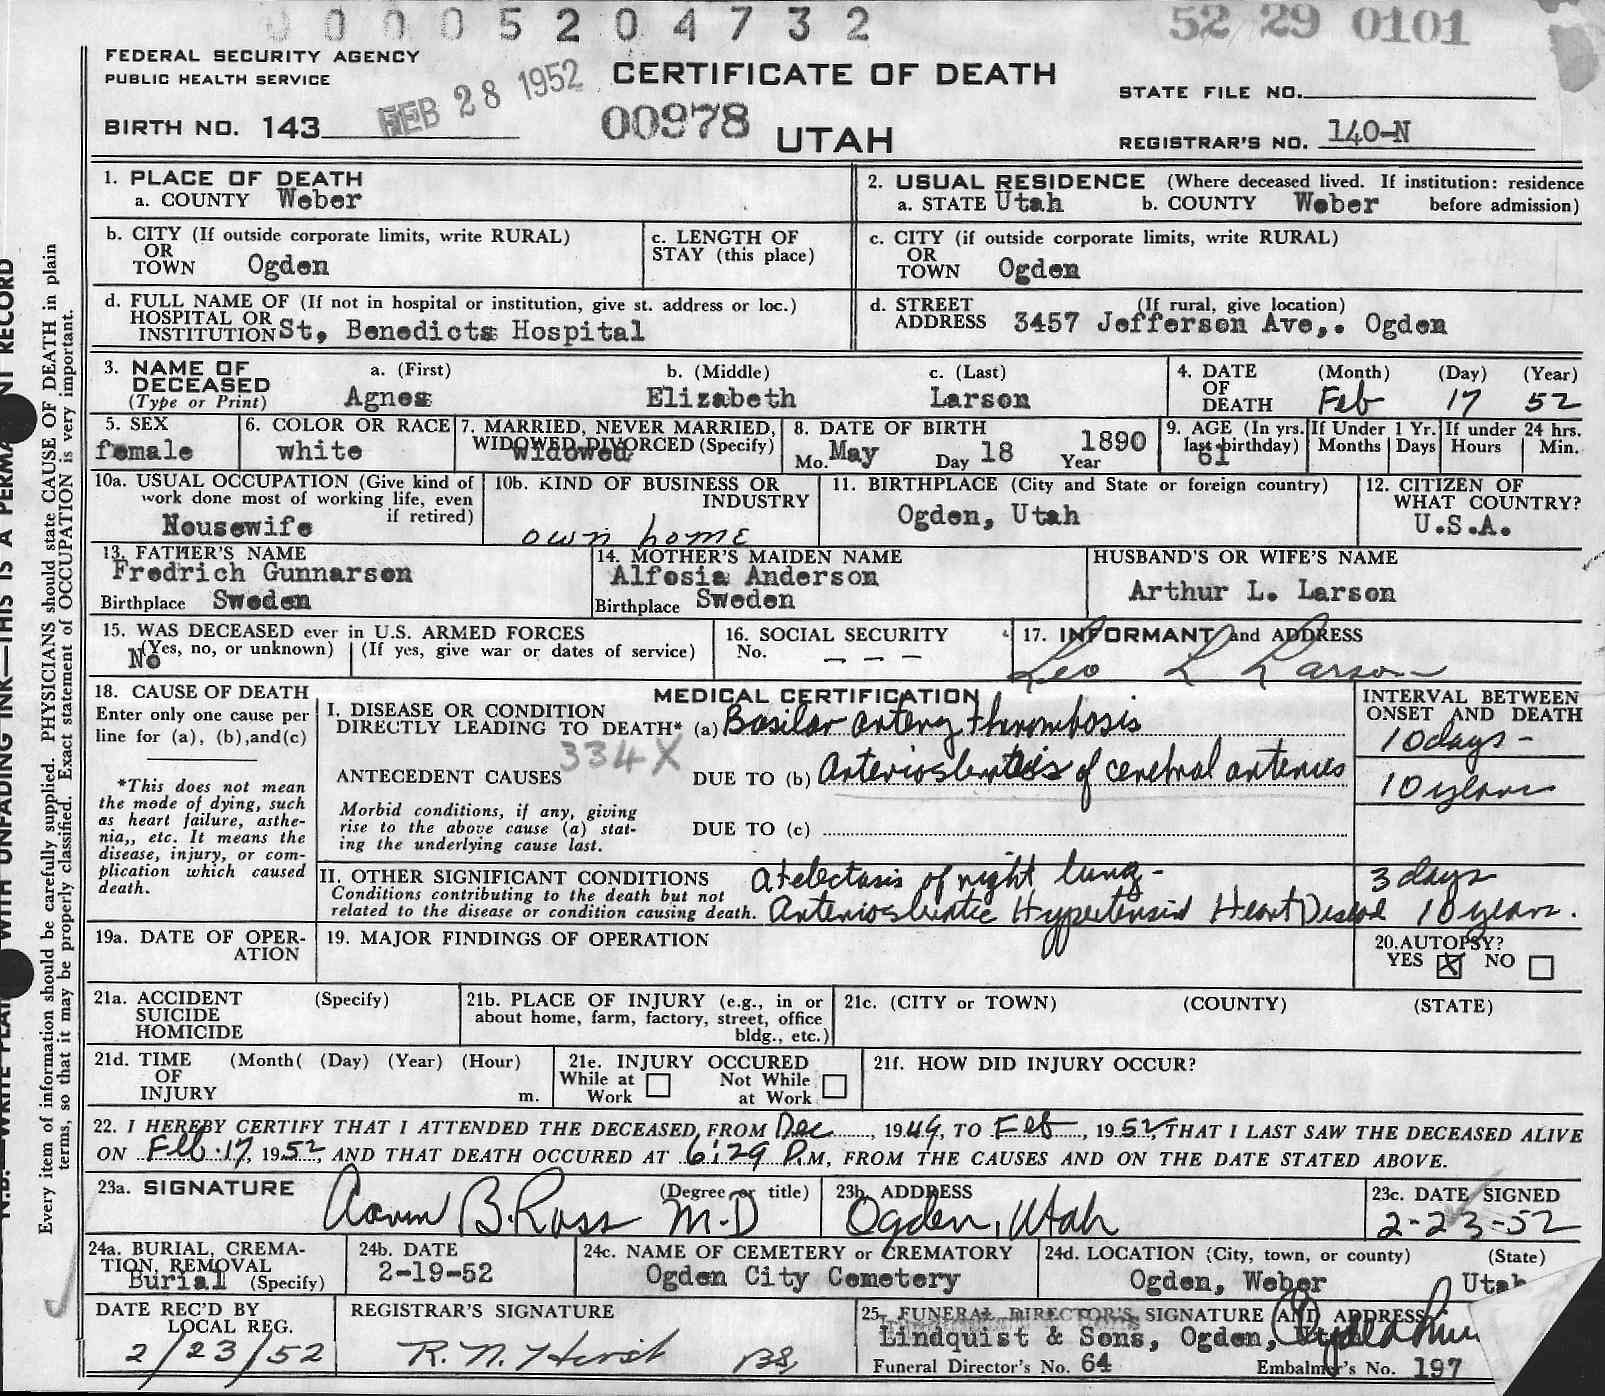 00005204732
52 29 0101
FEDERAL SECURITY AGENCY
PUBLIC HEALTH SERVICE
FEB 28 1952
CERTIFICATE OF DEATH
STATE FILE NO.
BIRTH NO. 143
00978
UTAH
REGISTRAR'S NO. 140-N
1. PLACE OF DEATH
a. COUNTY Weber
2. USUAL RESIDENCE (Where deceased lived. If institution: residence
a. STATE Utah b. COUNTY Weber before admission)
b. CITY (If outside corporate limits, write RURAL)
OR
TOWN Ogden
c. LENGTH OF
STAY (this place)
c. CITY (if outside corporate limits, write RURAL)
OR
TOWN Ogden
d. FULL NAME OF (If not in hospital or institution, give st. address or loc.)
HOSPITAL OR
INSTITUTION St, Benedicts Hospital
d. STREET (If rural, give location)
ADDRESS 3457 Jefferson Ave,. Ogden
3. NAME OF a. (First) b. (Middle) c. (Last)
DECEASED
(Type or Print) Agnes Elizabeth Larson
4. DATE (Month) (Day) (Year)
OF
DEATH Feb 17 52
5. SEX
female
6. COLOR OR RACE
white
7. MARRIED, NEVER MARRIED,
WIDOWED, DIVORCED (Specify)
Widowed
8. DATE OF BIRTH
Mo. May Day 18 Year 1890
9. AGE (In yrs.
last birthday)
61
If Under 1 Yr.
Months Days
If under 24 hrs.
Hours Min.
10a. USUAL OCCUPATION (Give kind of
work done most of working life, even
if retired)
Housewife
10b. KIND OF BUSINESS OR
INDUSTRY
own home
11. BIRTHPLACE (City and State or foreign country)
Ogden, Utah
12. CITIZEN OF
WHAT COUNTRY?
U.S.A.
13. FATHER'S NAME
Fredrich Gunnarson
Birthplace Sweden
14. MOTHER'S MAIDEN NAME
Alfosia Anderson
Birthplace Sweden
HUSBAND'S OR WIFE'S NAME
Arthur L. Larson
15. WAS DECEASED ever in U.S. ARMED FORCES
(Yes, no, or unknown) (If yes, give war or dates of service)
No
16. SOCIAL SECURITY
No. - - -
17. INFORMANT and ADDRESS
Leo L Larson
18. CAUSE OF DEATH
Enter only one cause per
line for (a), (b),and(c)
*This does not mean
the mode of dying, such
as heart failure, asthe-
nia,, etc. It means the
disease, injury, or com-
plication which caused
death.
MEDICAL CERTIFICATION
INTERVAL BETWEEN
ONSET AND DEATH
I. DISEASE OR CONDITION
DIRECTLY LEADING TO DEATH* (a) Basilar artery thrombosis
10 days -
334X
ANTECEDENT CAUSES DUE TO (b) Arteriosclerosis of cerebral arteries
10 years
Morbid conditions, if any, giving
rise to the above cause (a) stat-
ing the underlying cause last.
DUE TO (c)
II. OTHER SIGNIFICANT CONDITIONS
Conditions contributing to the death but not
related to the disease or condition causing death.
Atelectasis of right lung - 3 days
Arteriosclerotic Hypertensive Heart Disease 10 years.
19a. DATE OF OPER-
ATION
19. MAJOR FINDINGS OF OPERATION
20. AUTOPSY?
YES X NO
21a. ACCIDENT (Specify)
SUICIDE
HOMICIDE
21b. PLACE OF INJURY (e.g., in or
about home, farm, factory, street, office
bldg., etc.)
21c. (CITY or TOWN) (COUNTY) (STATE)
21d. TIME (Month( (Day) (Year) (Hour)
OF
INJURY m.
21e. INJURY OCCURED
While at Not While
Work at Work
21f. HOW DID INJURY OCCUR?
22. I HEREBY CERTIFY THAT I ATTENDED THE DECEASED FROM Dec, 1949, TO Feb, 1952, THAT I LAST SAW THE DECEASED ALIVE
ON Feb. 17, 1952, AND THAT DEATH OCCURED AT 6:29 P.M, FROM THE CAUSES AND ON THE DATE STATED ABOVE.
23a. SIGNATURE (Degree or title)
Aaron B. Ross M.D
23b. ADDRESS
Ogden, Utah
23c. DATE SIGNED
2-23-52
24a. BURIAL, CREMA-
TION, REMOVAL
Burial (Specify)
24b. DATE
2-19-52
24c. NAME OF CEMETERY or CREMATORY
Ogden City Cemetery
24d. LOCATION (City, town, or county) (State)
Ogden, Weber Utah
DATE REC'D BY
LOCAL REG.
2/23/52
REGISTRAR'S SIGNATURE
R. N. Hirsh BS
25. FUNERAL DIRECTOR'S SIGNATURE AND ADDRESS
Lindquist & Sons, Ogden, Utah
Funeral Director's No. 64 Embalmer's No. 197
Every item of information should be carefully supplied. PHYSICIANS should state CAUSE OF DEATH in plain
terms, so that it may be properly classified. Exact statement of OCCUPATION is very important.
WITH UNFADING INK—THIS IS A
RECORD